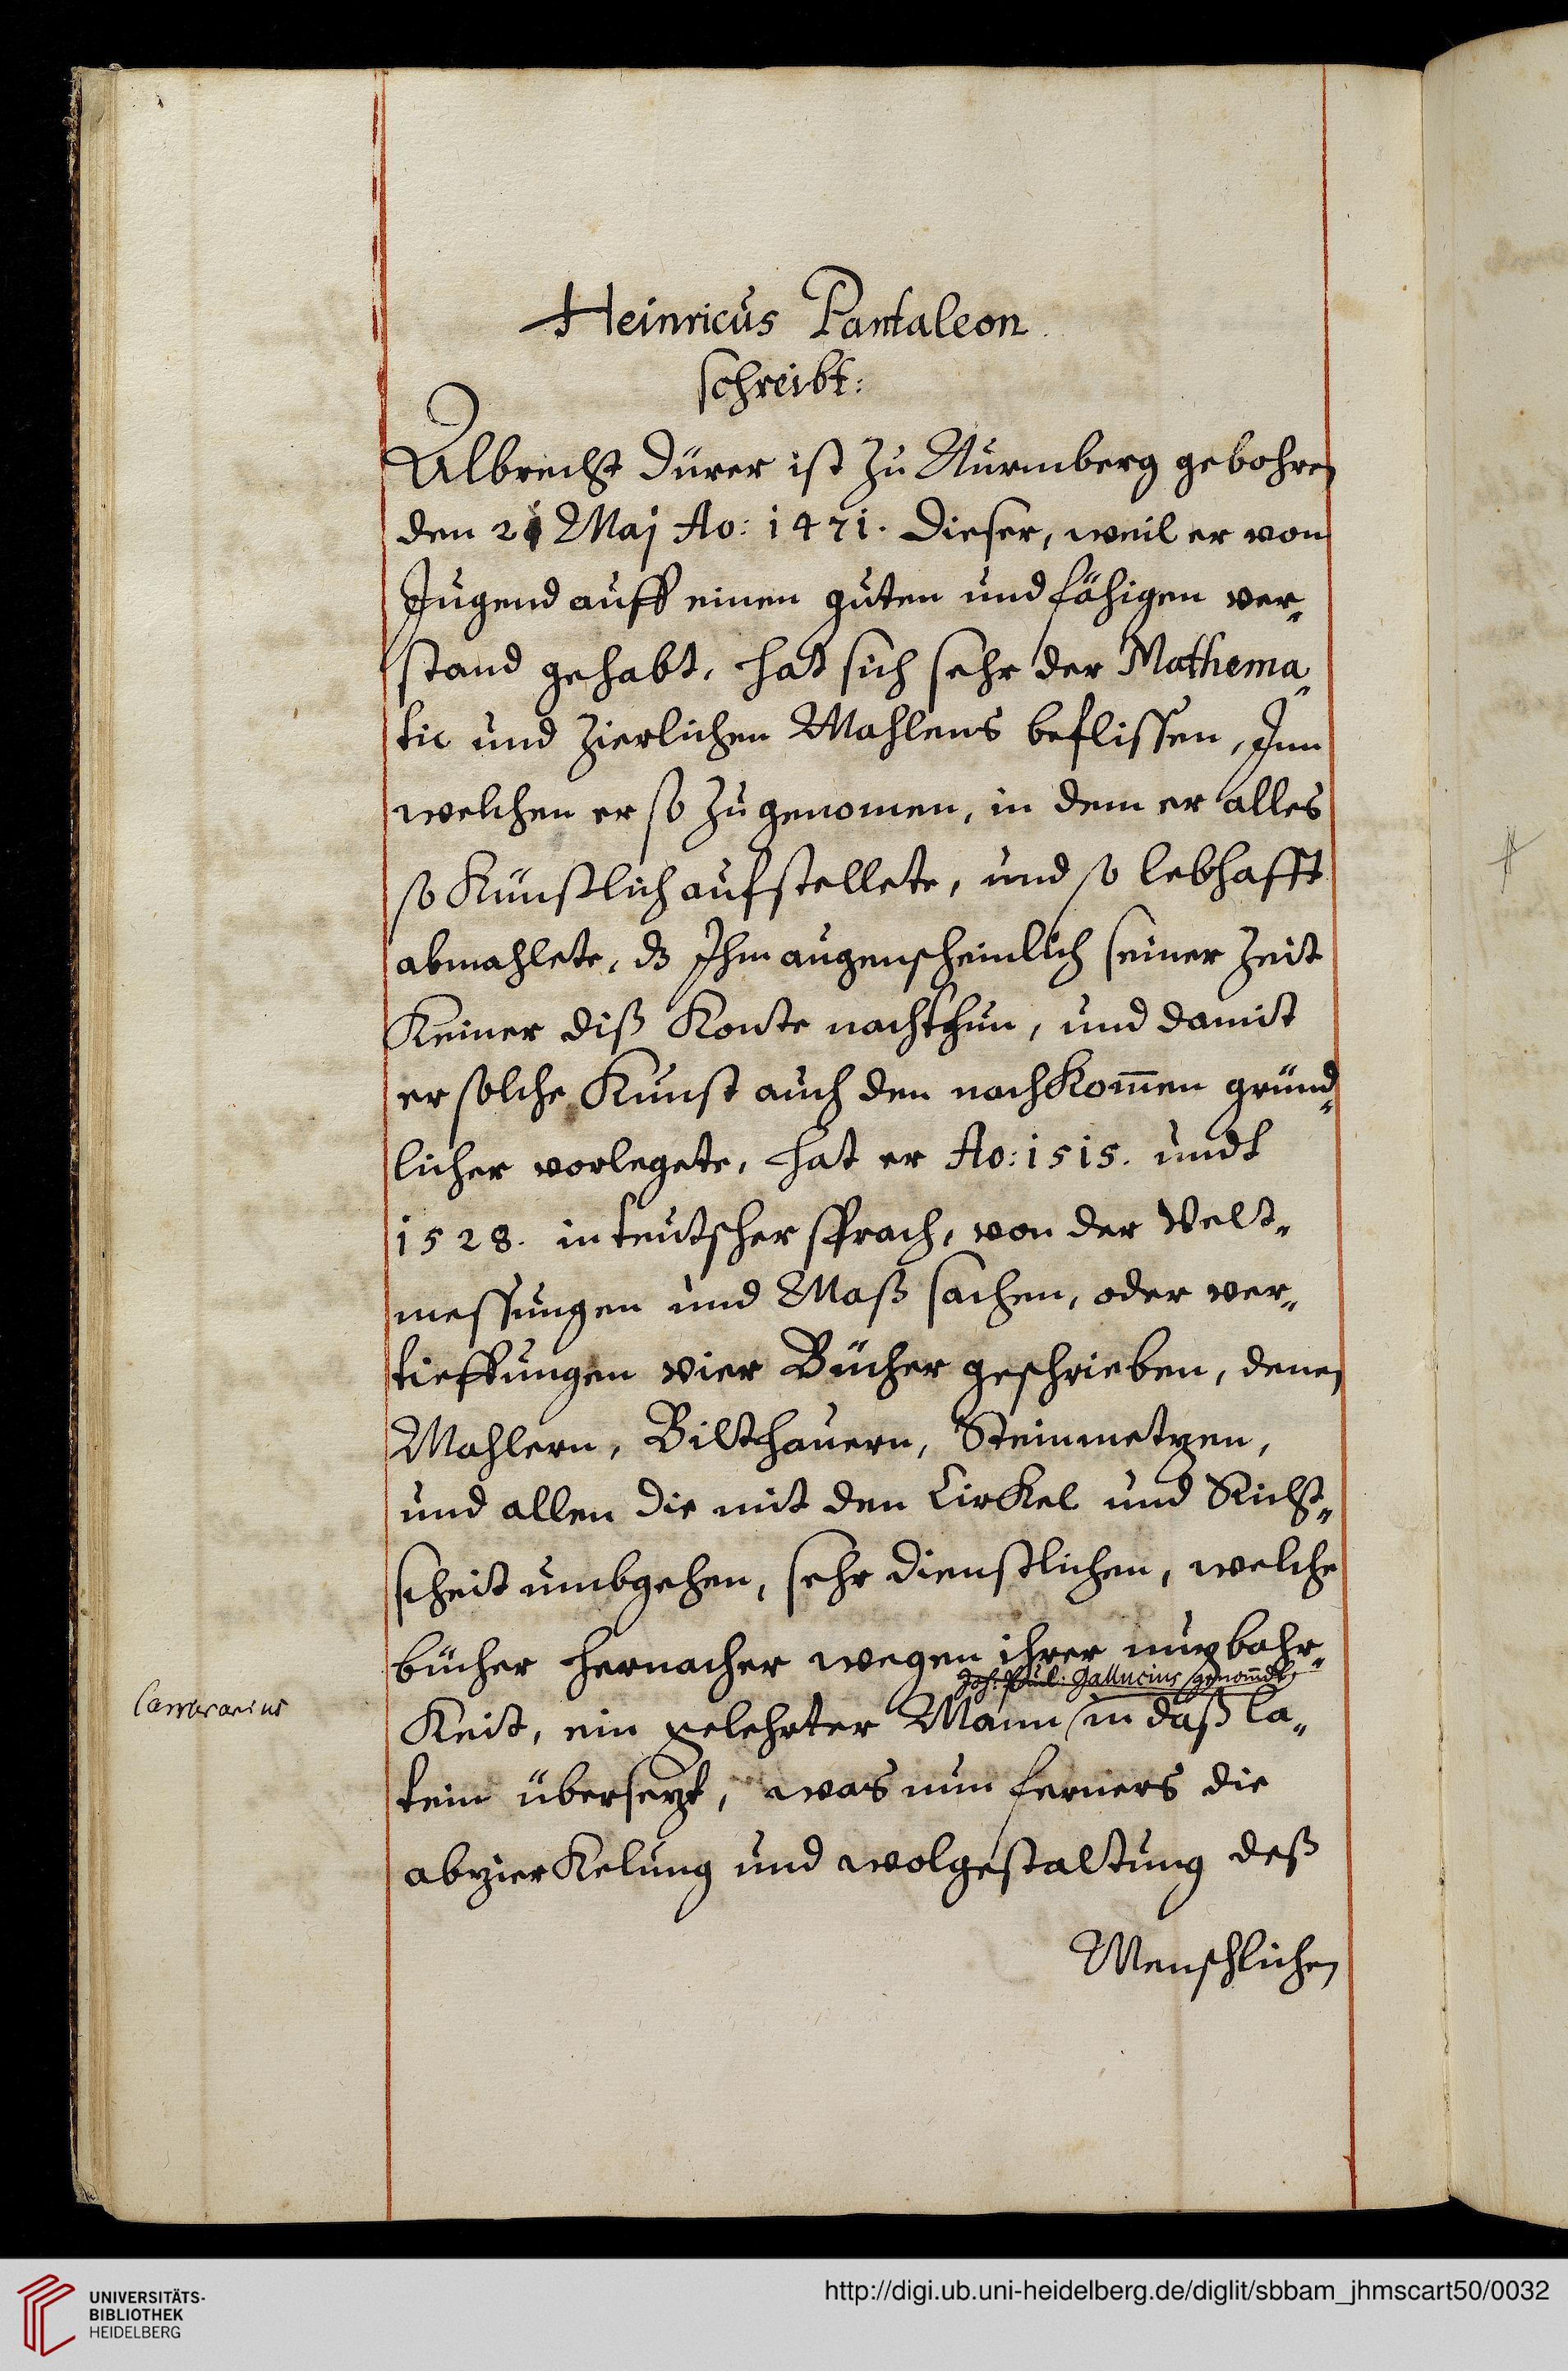 Heinricus Pantaleon
schreibt:
Albrecht Dürer ist zu Nürmberg gebohren
den 21 Maj Ao: 1471. Dieser, weil er von
Jugend auff einen guten und fähigen ver„
stand gehabt, hat sich sehr der Mathema„
tic und zierlichen Mahlens beflissen, Jnn
welchen er so zugenomen, in dem er alles
so Künstlich aufstellete, und so lebhafft
abmahlete, dz Jhm augenscheinlich seiner Zeit
Keiner diß Konte nachthun, und damit
er solche Kunst auch den nachkom̅en gründ„
licher vorlegete, hat er Ao: 1515. undt
1528. in teutscher sprach, von der Velt„
messungen und Maß sachen, oder ver„
tieffungen vier Bücher geschrieben, denen
Mahlern, Bilthauern, Steinmetzen,
und allen die mit den Cirkel und Richt„
scheit umbgehen, sehr dienstlichen, welche
bücher hernacher wegen ihrer nuzbahr„
Joh: Paul: Gallucius genom̅dt,
Camerarius
Keit, ein gelehrter Mann in daß la„
tein übersezt, was nun ferners die
abzierkelung und wolgestaltung deß
Menschlichen
UNIVERSITÄTS-
BIBLIOTHEK
HEIDELBERG
http://digi.ub.uni-heidelberg.de/diglit/sbbam_jhmscart50/0032